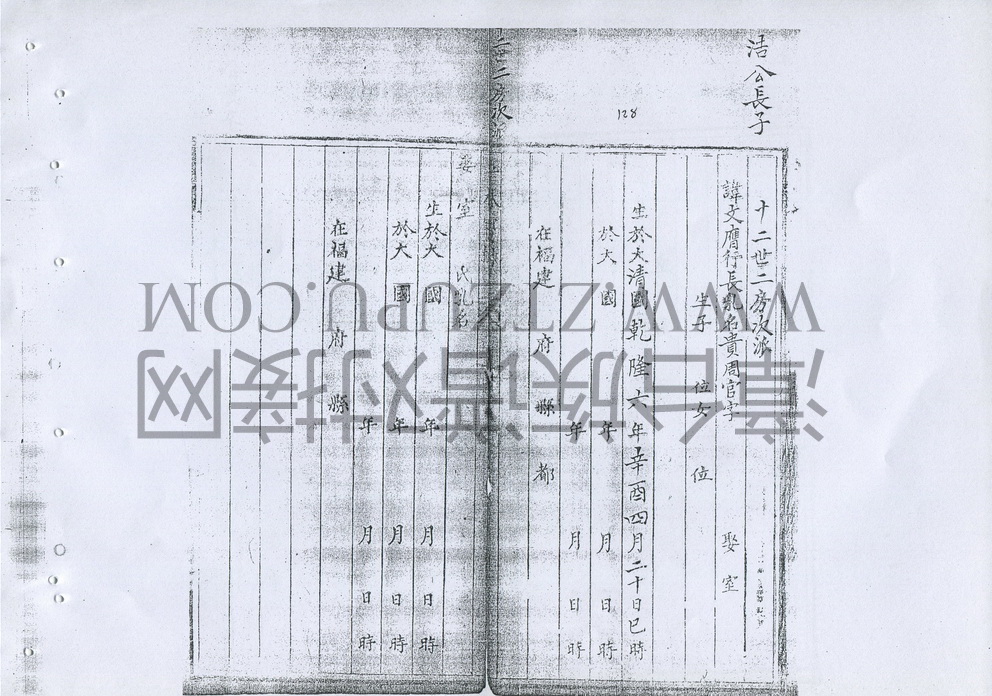 洁公長子
128
十二世二房次派
諱文鷹行長乳名貴周官字 娶室
生子 位女 位
生於大清國乾隆六年辛酉四月二十日巳時
於大 國 年 月 日 時
年 月 日 時
在福建 府 縣 都
二房次派
娶室 氏乳名
生於大 國 年 月 日 時
於大 國 年 月 日 時
年 月 日 時
在福建 府 縣
漳台族谱对接网
WWW.ZTZUPU.COM